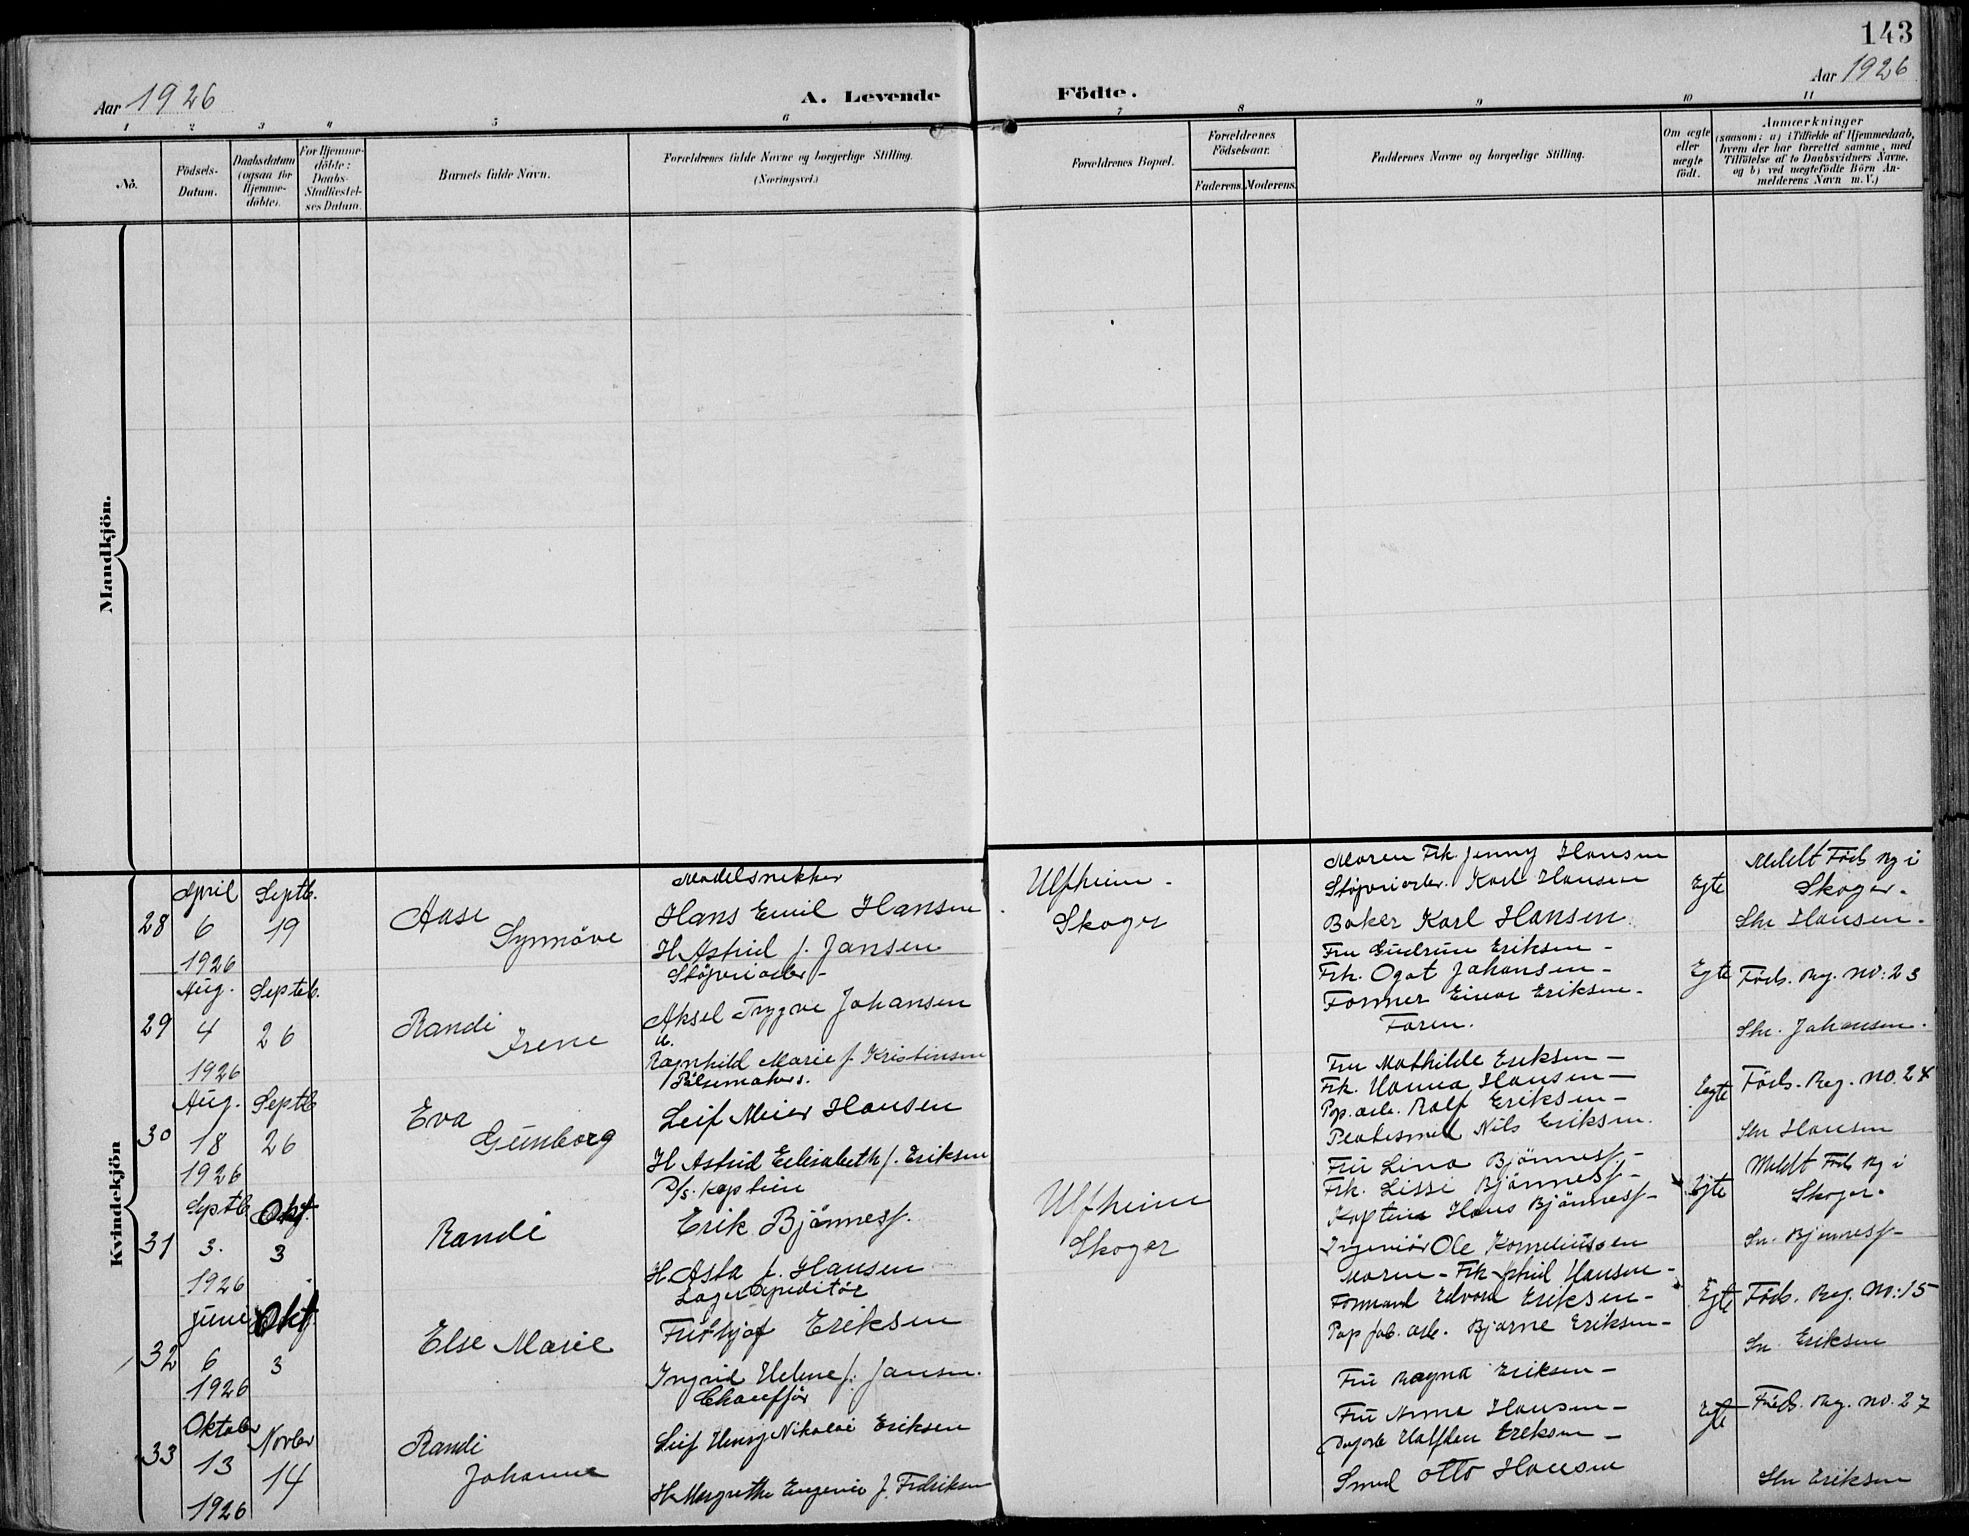 143
Aar 1926
A. Levende
Födte.
Aar 1926
1 2 3 4 5 6 7 8 9 10 11
No.
Födsels-
Datum.
Daabsdatum
(ogsaa for
Hjemme-
döbte).
For Hjemme-
döbte:
Daabs-
Stadfæstel-
ses Datum.
Barnets fulde Navn.
Forældrenes fulde Navne og borgerlige Stilling.
(Næringsvei.)
Forældrenes Bopæl.
Forældrenes
Födselsaar.
Faderens. Moderens.
Faddernes Navne og borgerlige Stilling.
Om ægte
eller
uægte
födt.
Anmærkninger
(saasom: a) i Tilfælde af Hjemmedaab,
hvem der har forrettet samme, med
Tilföielse af to Daabsvidners Navne,
og b) ved uægtefödte Börn An-
melderens Navn m. V.)
Mandkjön.
Kvindekjön
28
April
6
1926
Septb.
19
Aase
Synnöve
Modelsnekker
Hans Emil Hansen
H. Astrid f. Jansen
Ulfheim.
Skoger
Moren Frk. Jenny Hansen
Støjperiarb. Karl Hansen
Baker Karl Hansen
Egte
Meldt Föds Rg i
Skoger.
Skr Hansen.
29
Aug.
4
1926
Septb.
26
Randi
Irene
Støjperiarb.
Aksel Trygve Johansen
H.
Ragnhild Marie f. Kristensen
Fru Gudrun Eriksen -
Frk. Ogot Johansen -
Former Einar Eriksen -
Faren.
Egte
Föds. Reg. no: 23
Skr. Johansen.
30
Aug.
18
1926
Septb
26
Eva
Gunborg
Pölsemaker.
Leif Meier Hansen
H Astrid Elisabeth f. Eriksen
Fru Mathilde Eriksen -
Frk. Hanna Hansen -
Pap. arb. Ralf Eriksen -
Nils Eriksen.
Egte
Föds. Reg. no. 24
Skr Hansen
31
Septb
3.
1926
Okt.
3
Randi
D/s. kaptein
Erik Bjönness.
H. Asta f. Hansen
Ulfheim
Skoger
Fru Lina Bjönness -
Frk. Lissi Bjönness -
Kaptein Hans Bjönness -
Ingeniör Ole Korneliussen
Egte
Meldt Föds Rg i
Skoger.
Sn. Bjönness -
32
juni
6
1926
Okt.
3
Else Marie
Lagerexpeditör
Frithjof Eriksen
Ingrid Helene f. Jansen.
Moren - Frk Hansen -
Formand Edvard Eriksen -
Pap fab. arb. Bjarne Eriksen -
Fru Magna Eriksen -
Egte
Föds. Reg. No: 15
Sn. Eriksen
33
Oktober
13
1926
Novbr
14
Randi
Johanne
Chauffför
Leif Henry Nikolai Eriksen
H. Margrethe Eugenie f. Fredriksen
Fru Anna Hansen -
Halfdan Eriksen -
Smed Otto Hansen
Egte
Föds. Reg. no. 27
Skr Eriksen